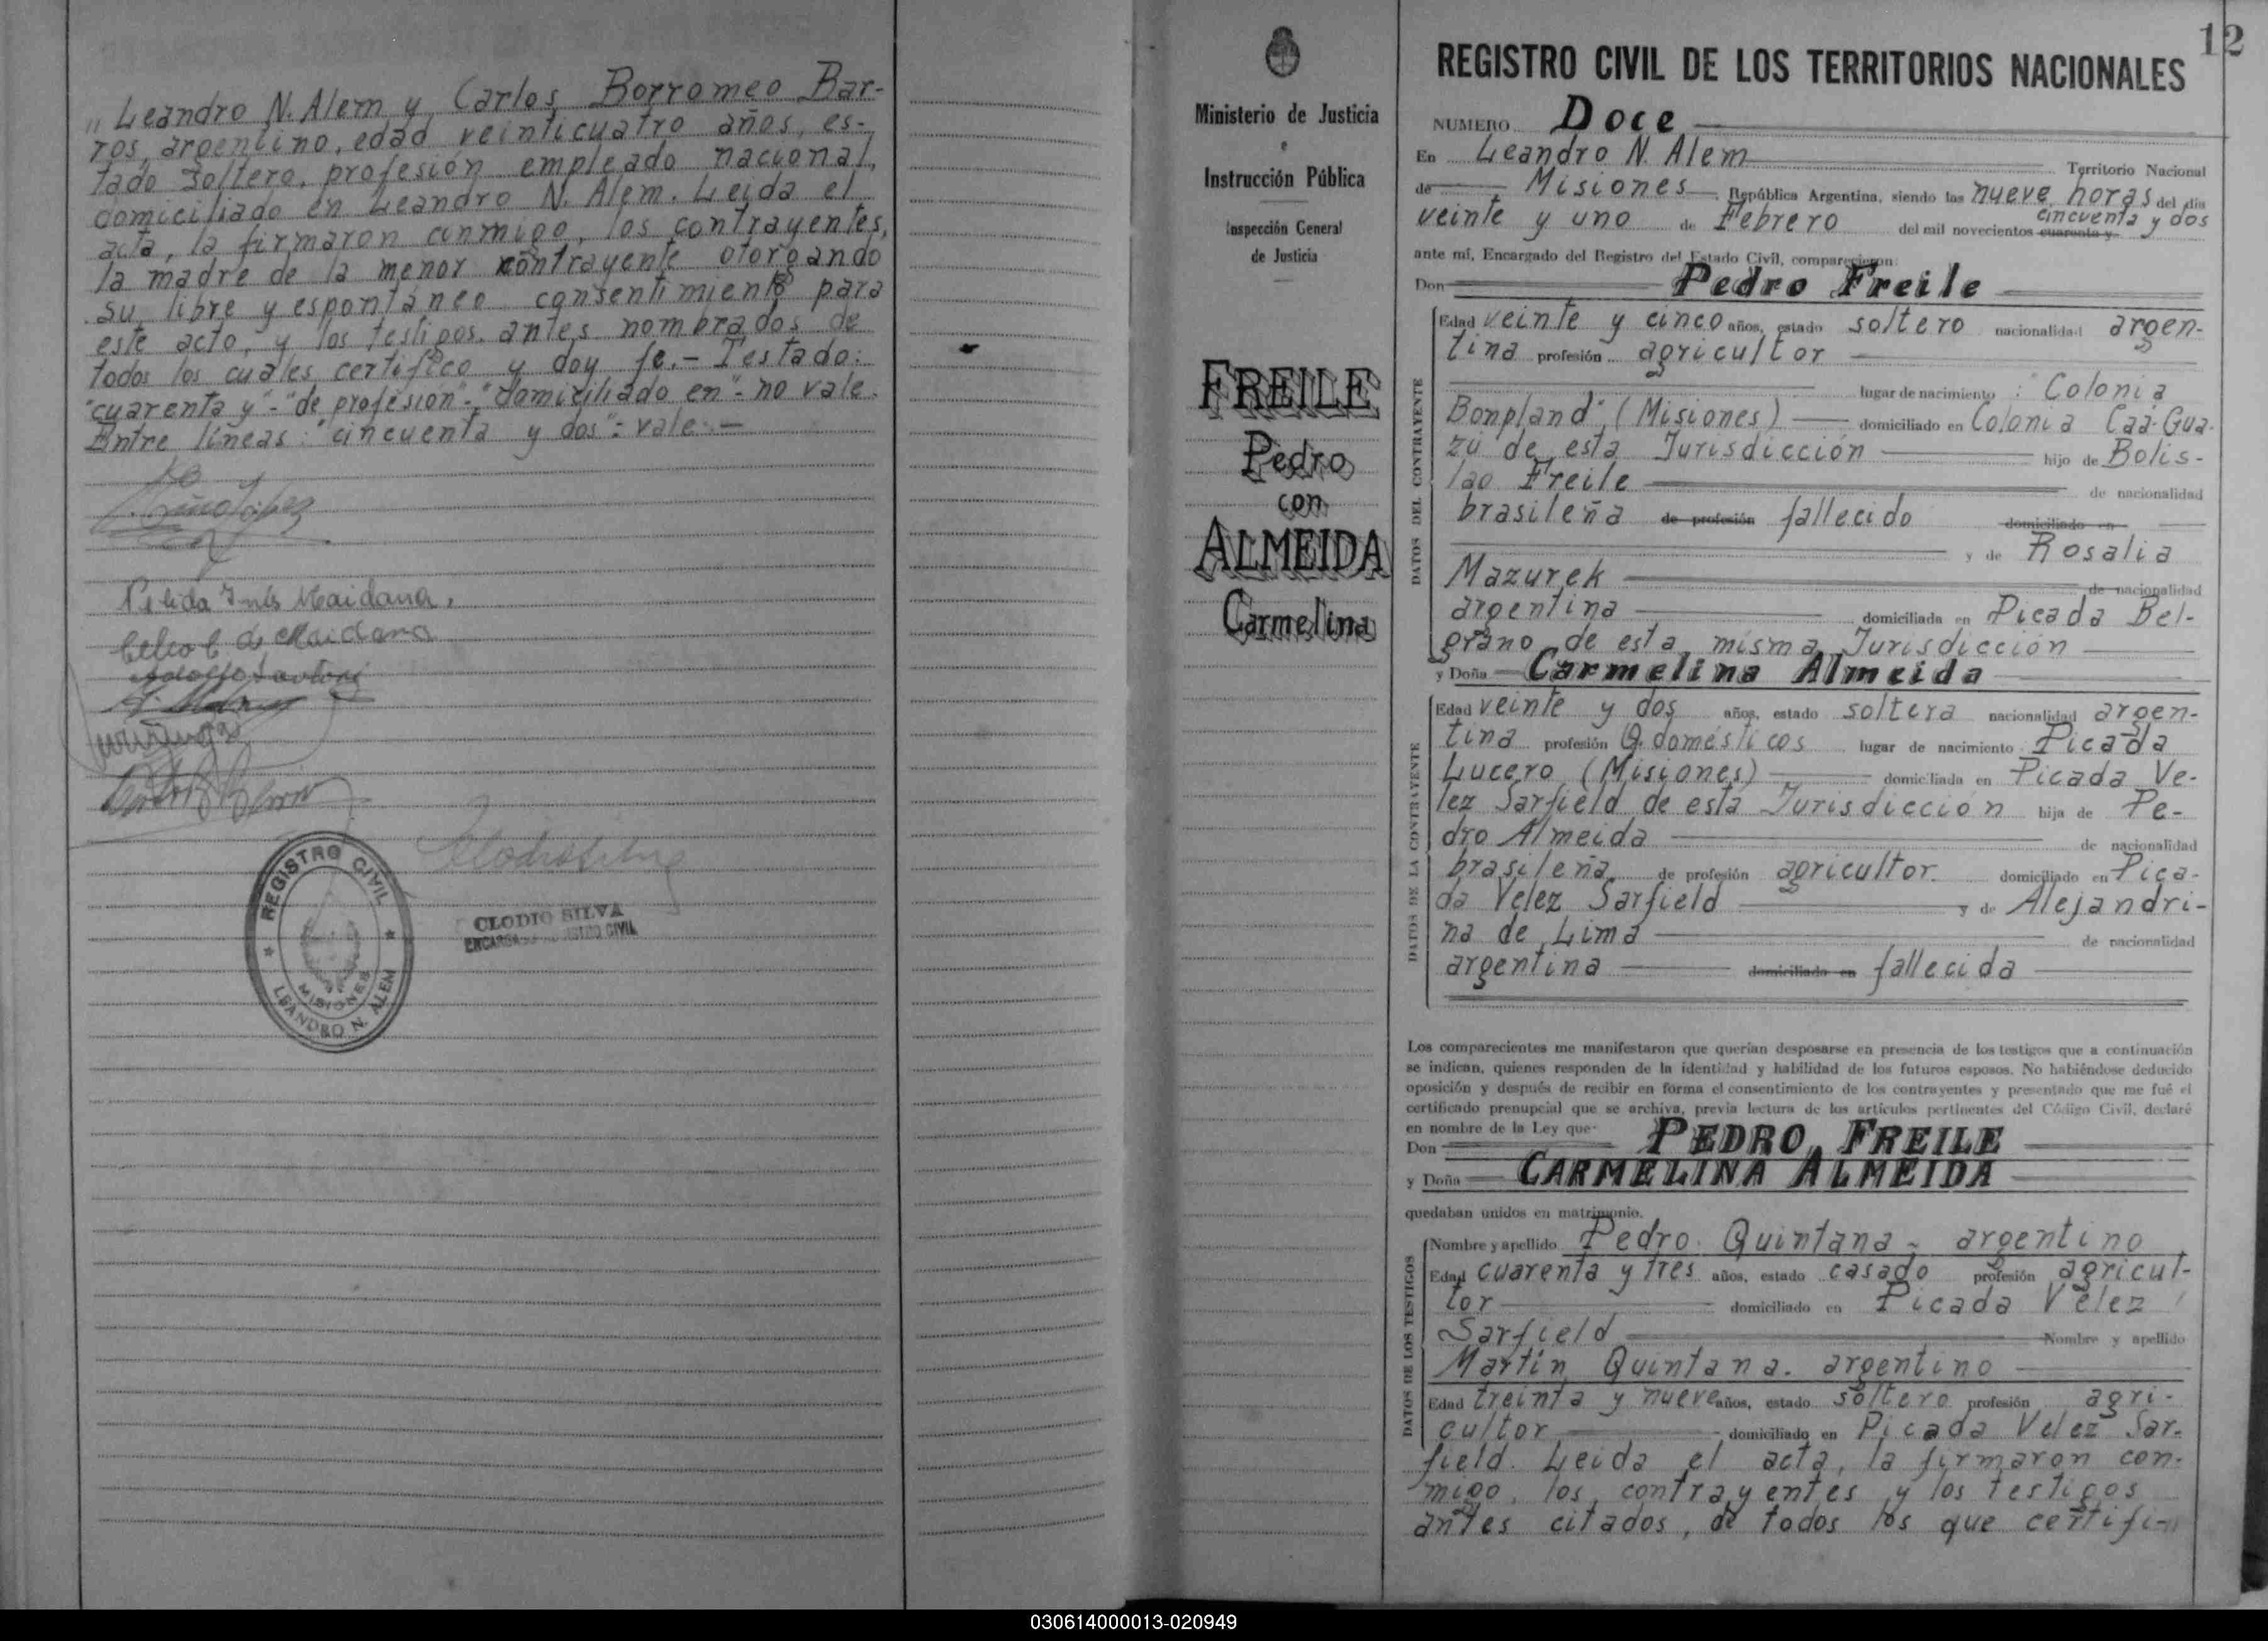 " Leandro N. Alem y Carlos Borromeo Bar-
ros, argentino, edad veinticuatro años, es-
tado soltero, profesión empleado nacional,
domiciliado en Leandro N. Alem. Leida el
acta, la firmaron conmigo, los contrayentes,
la madre de la menor contrayente otorgando
su libre y espontáneo consentimiento para
este acto, y los testigos antes nombrados de
todos los cuales certifico y doy fe.- Testado:
"cuarenta y"-"de profesión"-"domiciliado en"- no vale.
Entre líneas: "cincuenta y dos": vale.-
Maidana.
de Maidana
REGISTRO CIVIL
MISIONES
LEANDRO N. ALEM
CLODIO SILVA
Ministerio de Justicia
e
Instrucción Pública
Inspección General
de Justicia
FREILE
Pedro
con
ALMEIDA
Carmelina
12
REGISTRO CIVIL DE LOS TERRITORIOS NACIONALES
NUMERO Doce
En Leandro N. Alem Territorio Nacional
de Misiones República Argentina, siendo las nueve horas del día
cincuenta y dos
veinte y uno de Febrero del mil novecientos cuarenta y
ante mí, Encargado del Registro del Estado Civil, comparecieron:
Don Pedro Freile
DATOS DEL CONTRAYENTE
Edad veinte y cinco años, estado soltero nacionalidad argen-
tina profesión agricultor
lugar de nacimiento : "Colonia
Bonpland" (Misiones) domiciliado en Colonia Caá-Gua-
zú de esta Jurisdicción hijo de Bolis-
lao Freile de nacionalidad
brasileña de profesión fallecido domiciliado en
y de Rosalia
Mazurek de nacionalidad
argentina domiciliada en Picada Bel-
grano de esta misma Jurisdicción
y Doña Carmelina Almeida
DATOS DE LA CONTRAYENTE
Edad veinte y dos años, estado soltera nacionalidad argen-
tina profesión Q. domésticos lugar de nacimiento Picada
Lucero (Misiones) domiciliada en Picada Ve-
lez Sarfield de esta Jurisdicción hija de Pe-
dro Almeida de nacionalidad
brasileña de profesión agricultor. domiciliado en Pica-
da Velez Sarfield y de Alejandri-
na de Lima de nacionalidad
argentina domiciliada en fallecida
Los comparecientes me manifestaron que querían desposarse en presencia de los testigos que a continuación
se indican, quienes responden de la identidad y habilidad de los futuros esposos. No habiéndose deducido
oposición y después de recibir en forma el consentimiento de los contrayentes y presentado que me fué el
certificado prenupcial que se archiva, previa lectura de los artículos pertinentes del Código Civil, declaré
en nombre de la Ley que:
Don PEDRO FREILE
y Doña CARMELINA ALMEIDA
quedaban unidos en matrimonio.
DATOS DE LOS TESTIGOS
Nombre y apellido Pedro Quintana - argentino
Edad cuarenta y tres años, estado casado profesión agricul-
tor domiciliado en Picada Vélez
Sarfield Nombre y apellido
Martín Quintana. argentino
Edad treinta y nueve años, estado soltero profesión agri-
cultor domiciliado en Picada Velez Sar-
field. Leida el acta, la firmaron con-
migo, los contrayentes y los testigos
antes citados, de todos los que certifi-
030614000013-020949